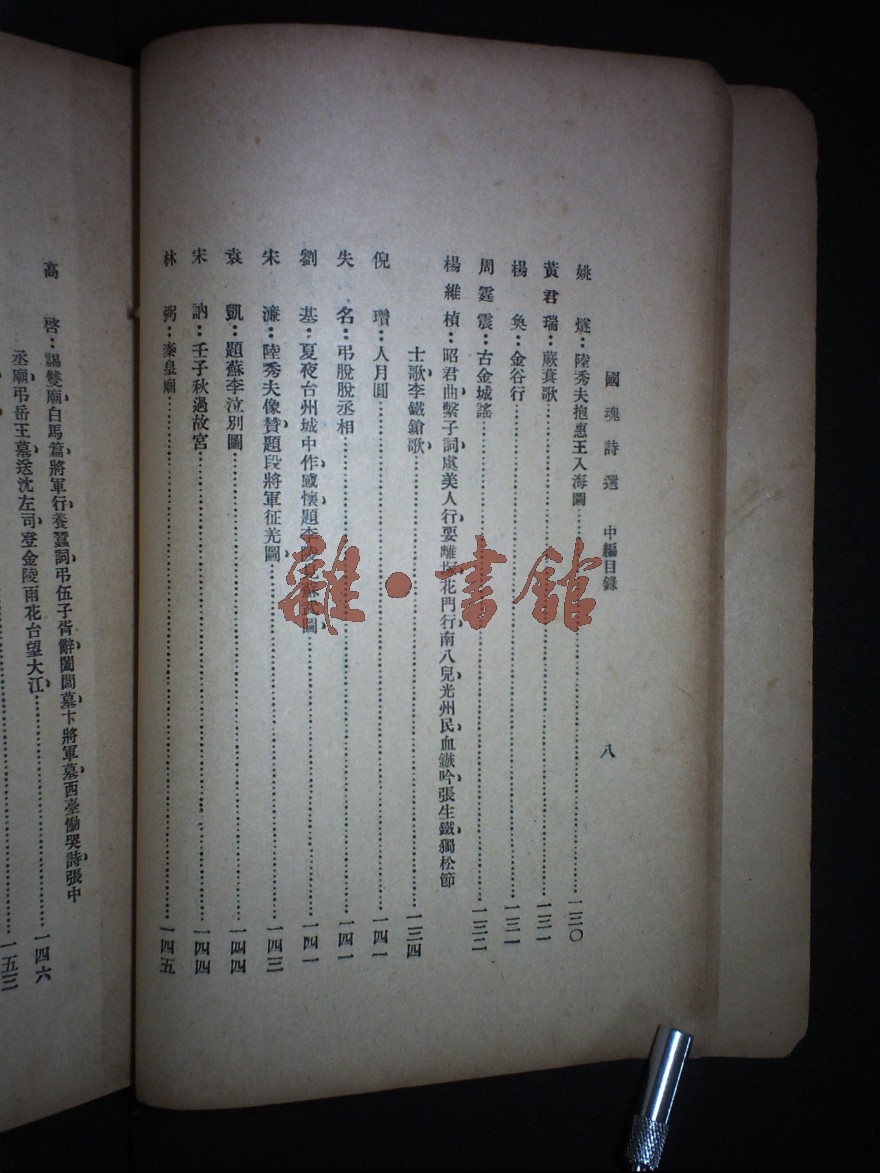 國魂詩選 中編目錄 八
姚燧：陸秀夫抱惠王入海圖……一三〇
黃君瑞：蕨萁歌……一三一
楊奐：金谷行……一三一
周霆震：古金城謠……一三二
楊維楨：昭君曲、繫子詞、虞美人行、要離塚、花門行、南八兒、光州民、血鏃吟、張生鐵、獨松節
士歌、李鐵鎗歌、……一三四
倪瓚：人月圓……一四一
失名：弔脫脫丞相……一四一
劉基：夏夜台州城中作、感懷、題李陵見蘇武圖、……一四一
宋濂：陸秀夫像贊、題段將軍征羌圖、……一四三
袁凱：題蘇李泣別圖……一四四
宋訥：壬子秋過故宮……一四四
林弼：秦皇廟……一四五
高啓：謁雙廟、白馬篇、將軍行、養蠶詞、弔伍子胥辭、闔閭墓、卞將軍墓、西臺慟哭詩、張中
丞廟、弔岳王墓、送沈左司、登金陵雨花台望大江、……一四六
一五三
雜·書館